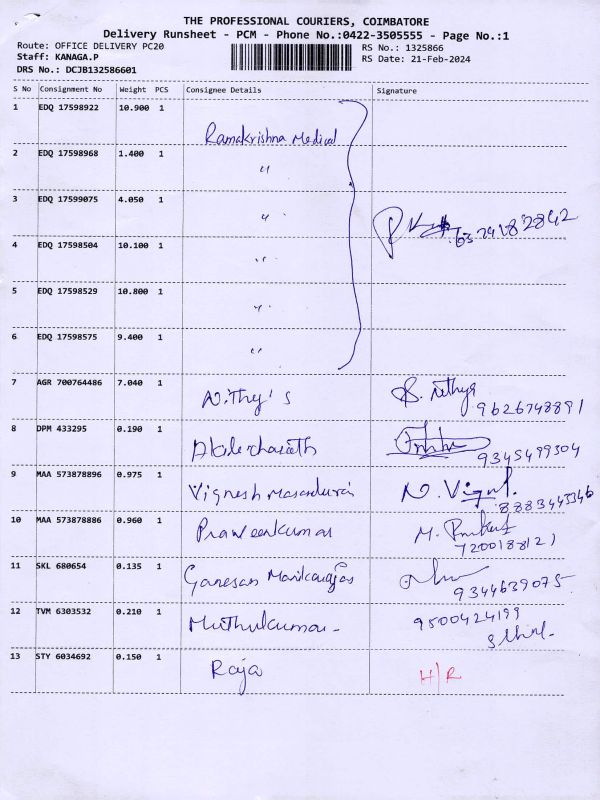 THE PROFESSIONAL COURIERS, COIMBATORE
Delivery Runsheet - PCM - Phone No.:0422-3505555 - Page No.:1
Route: OFFICE DELIVERY PC20
RS No.: 1325866
Staff: KANAGA.P
RS Date: 21-Feb-2024
DRS No.: DCJB132586601
S No Consignment No Weight PCS Consignee Details Signature
1 EDQ 17598922 10.900 1 Ramakrishna Medical
2 EDQ 17598968 1.400 1 "
3 EDQ 17599075 4.050 1 "
4 EDQ 17598504 10.100 1 "
5 EDQ 17598529 10.800 1 "
6 EDQ 17598575 9.400 1 "
7 AGR 700764486 7.040 1 Nithy's S. Nithya
9626748891
8 DPM 433295 0.190 1
9345499304
9 MAA 573878896 0.975 1 Vignesh N. Vignesh
10 MAA 573878886 0.960 1 Praveenkumar
7200188121
11 SKL 680654 0.135 1 Ganesan
9344639075
12 TVM 6303532 0.210 1 Muthukumar - 9500424199
13 STY 6034692 0.150 1 Raja H/R